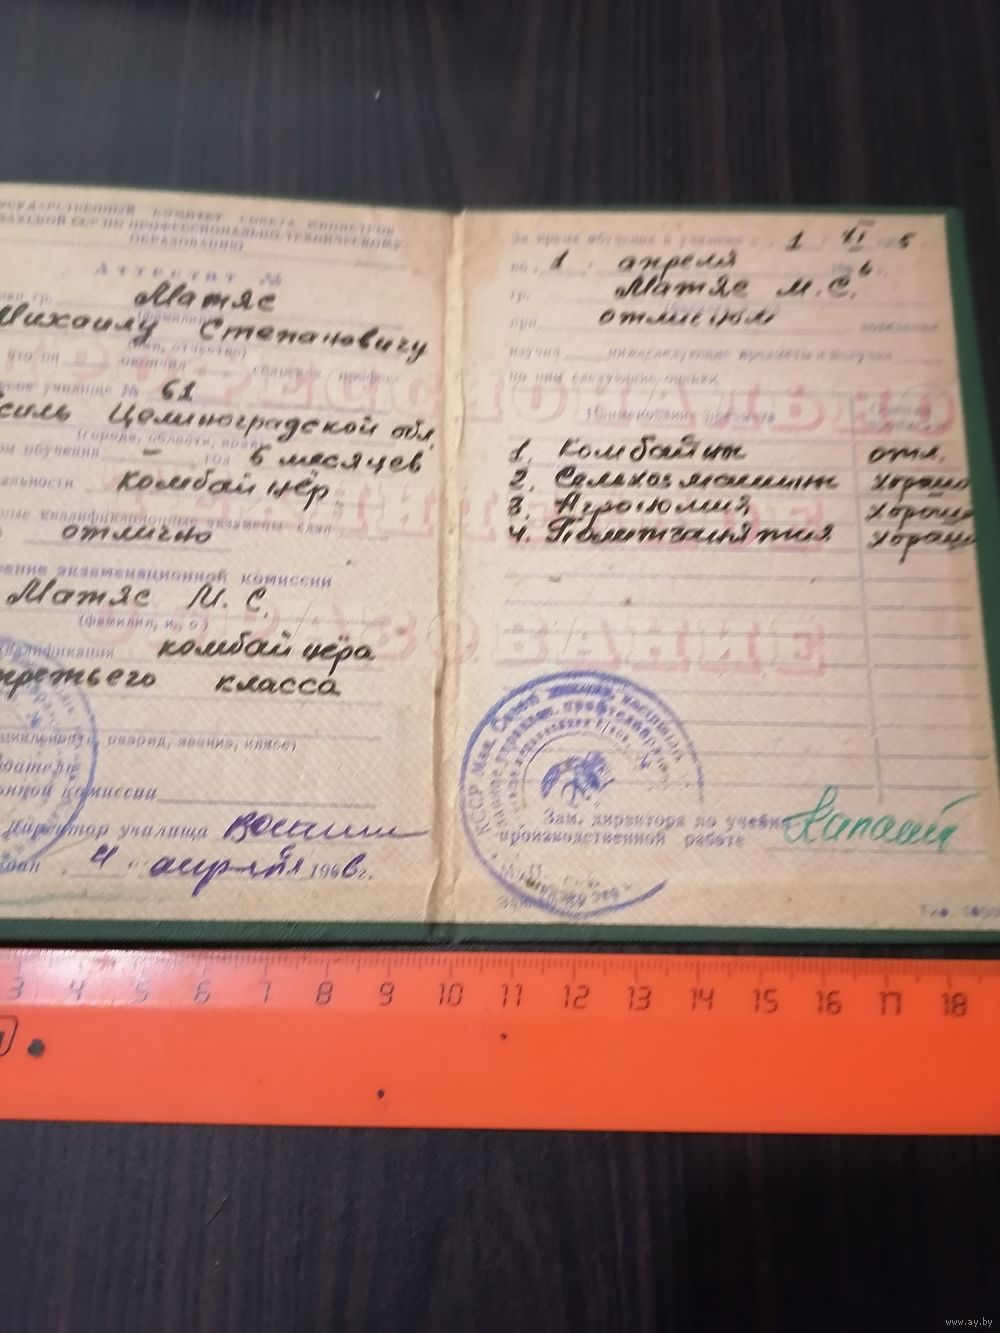 ГОСУДАРСТВЕННЫЙ КОМИТЕТ СОВЕТА МИНИСТРОВ
КАЗАХСКОЙ ССР ПО ПРОФЕССИОНАЛЬНО-ТЕХНИЧЕСКОМУ
ОБРАЗОВАНИЮ
Аттестат №
гр. Матяс
Михаилу Степановичу
(имя, отчество)
что он окончил сельское
училище № 61
Целиноградской обл.
(города, области, края)
обучения — год 6 месяцев
комбайнёр
квалификационные экзамены сдал
отлично
экзаменационной комиссии
Матяс М. С.
(фамилия, и. о)
комбайнёра
третьего класса
разряд, звание, класс)
комиссии
Директор училища
4 апреля 1966 г.
За время обучения в училище с 1 VI 5
по 1 апреля 6
гр. Матяс М. С.
при отличном поведении
изучил нижеследующие предметы и получил
по ним следующие оценки
Наименование предмета
1. Комбайны отл.
2. Сельхозмашины хорошо
3. Агрономия хорошо
4. Политзанятия хорошо
ПРОФЕССИОНАЛЬНО
ТЕХНИЧЕСКОЕ
ОБРАЗОВАНИЕ
Зам. директора по учебно
производственной работе
М. П.
3 4 5 6 7 8 9 10 11 12 13 14 15 16 17 18
www.ay.by